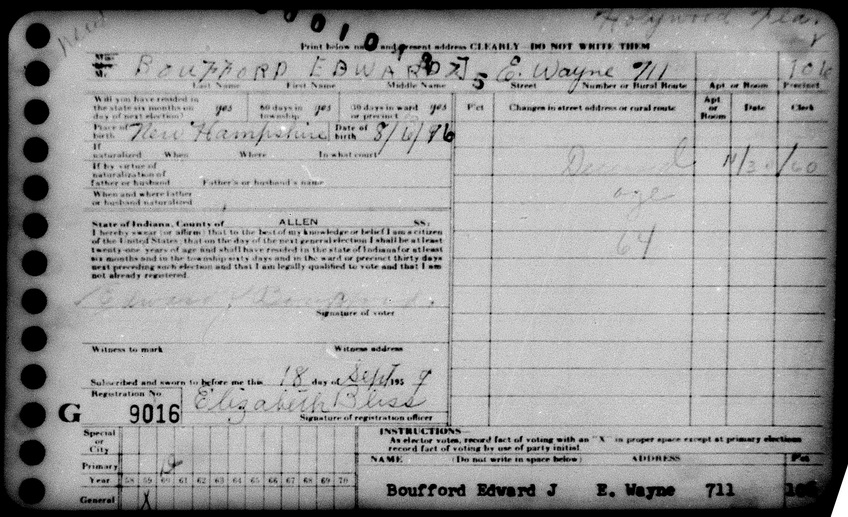 Holywood Fla.
Print below name and present address CLEARLY—DO NOT WRITE THEM
Mr. BOUFFORD EDWARD J E. Wayne 711 106
Last Name First Name Middle Name Street Number or Rural Route Apt or Room Precinct
Will you have resided in the state six months on day of next election? yes 60 days in township yes 30 days in ward or precinct yes
Pct Changes in street address or rural route Apt or Room Date Clerk
Place of birth New Hampshire Date of birth 8/6/96
If naturalized When Where In what court
Deceased 11/30/60
If by virtue of naturalization of father or husband Father's or husband's name
age
When and where father or husband naturalized
64
State of Indiana, County of ALLEN SS:
I hereby swear (or affirm) that to the best of my knowledge or belief I am a citizen
of the United States; that on the day of the next general election I shall be at least
twenty-one years of age and shall have resided in the state of Indiana for at least
six months and in the township sixty days and in the ward or precinct thirty days
next preceding such election and that I am legally qualified to vote and that I am
not already registered.
Edward J Boufford
Signature of voter
Witness to mark Witness address
Subscribed and sworn to before me this 18 day of Sept 1959
Registration No.
G 9016 Elizabeth Bliss
Signature of registration officer
Special or City
Primary D
Year 58 59 60 61 62 63 64 65 66 67 68 69 70
General X
INSTRUCTIONS
As elector votes, record fact of voting with an "X" in proper space except at primary elections
record fact of voting by use of party initial.
NAME (Do not write in space below) ADDRESS Pct
Boufford Edward J E. Wayne 711 106